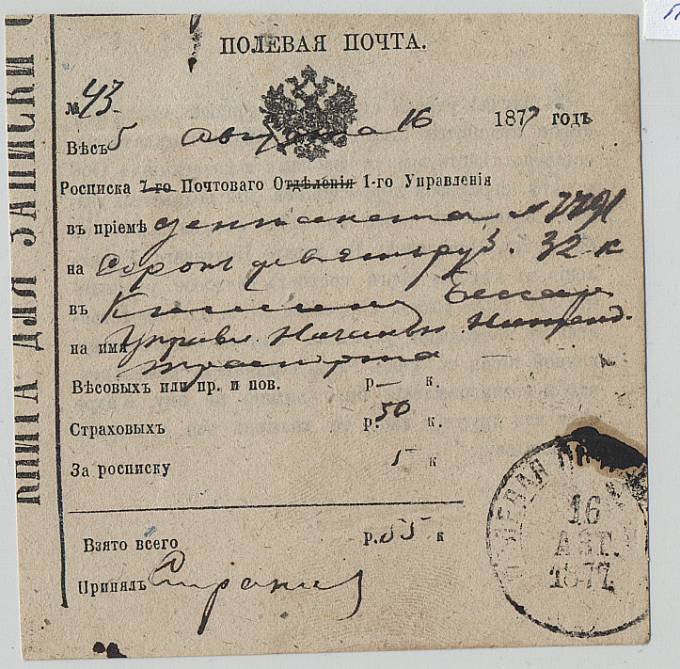 ПОЛЕВАЯ ПОЧТА.
№ 43
августа 16 1877 годъ
Вѣсъ 5
Росписка 7-го Почтоваго Отдѣленія 1-го Управленія
въ пріемѣ ден пакета № 7791
на Сорок девять руб. 32 к
въ Кишинев Бессар
на имя Управл. Начальн Интенд.
транспорта
Вѣсовыхъ или пр. и пов. р — к.
Страховыхъ р. 50 к.
За росписку 5 к
Взято всего р. 55 к
Принялъ
КНИГА ДЛЯ ЗАПИСКИ
16
АВГ.
1877